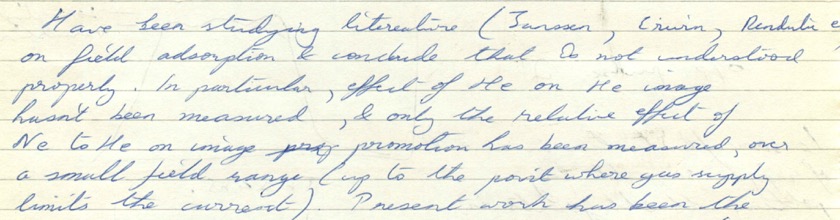 Have been studying literature (Janssen, Irwin, Rendulic
on field adsorption & conclude that Is not understood
properly. In particular, effect of He on He image
hasn't been measured, & only the relative effect of
Ne to He on image promotion has been measured, over
a small field range (up to the point where gas supply
limits the current). Present work has been the